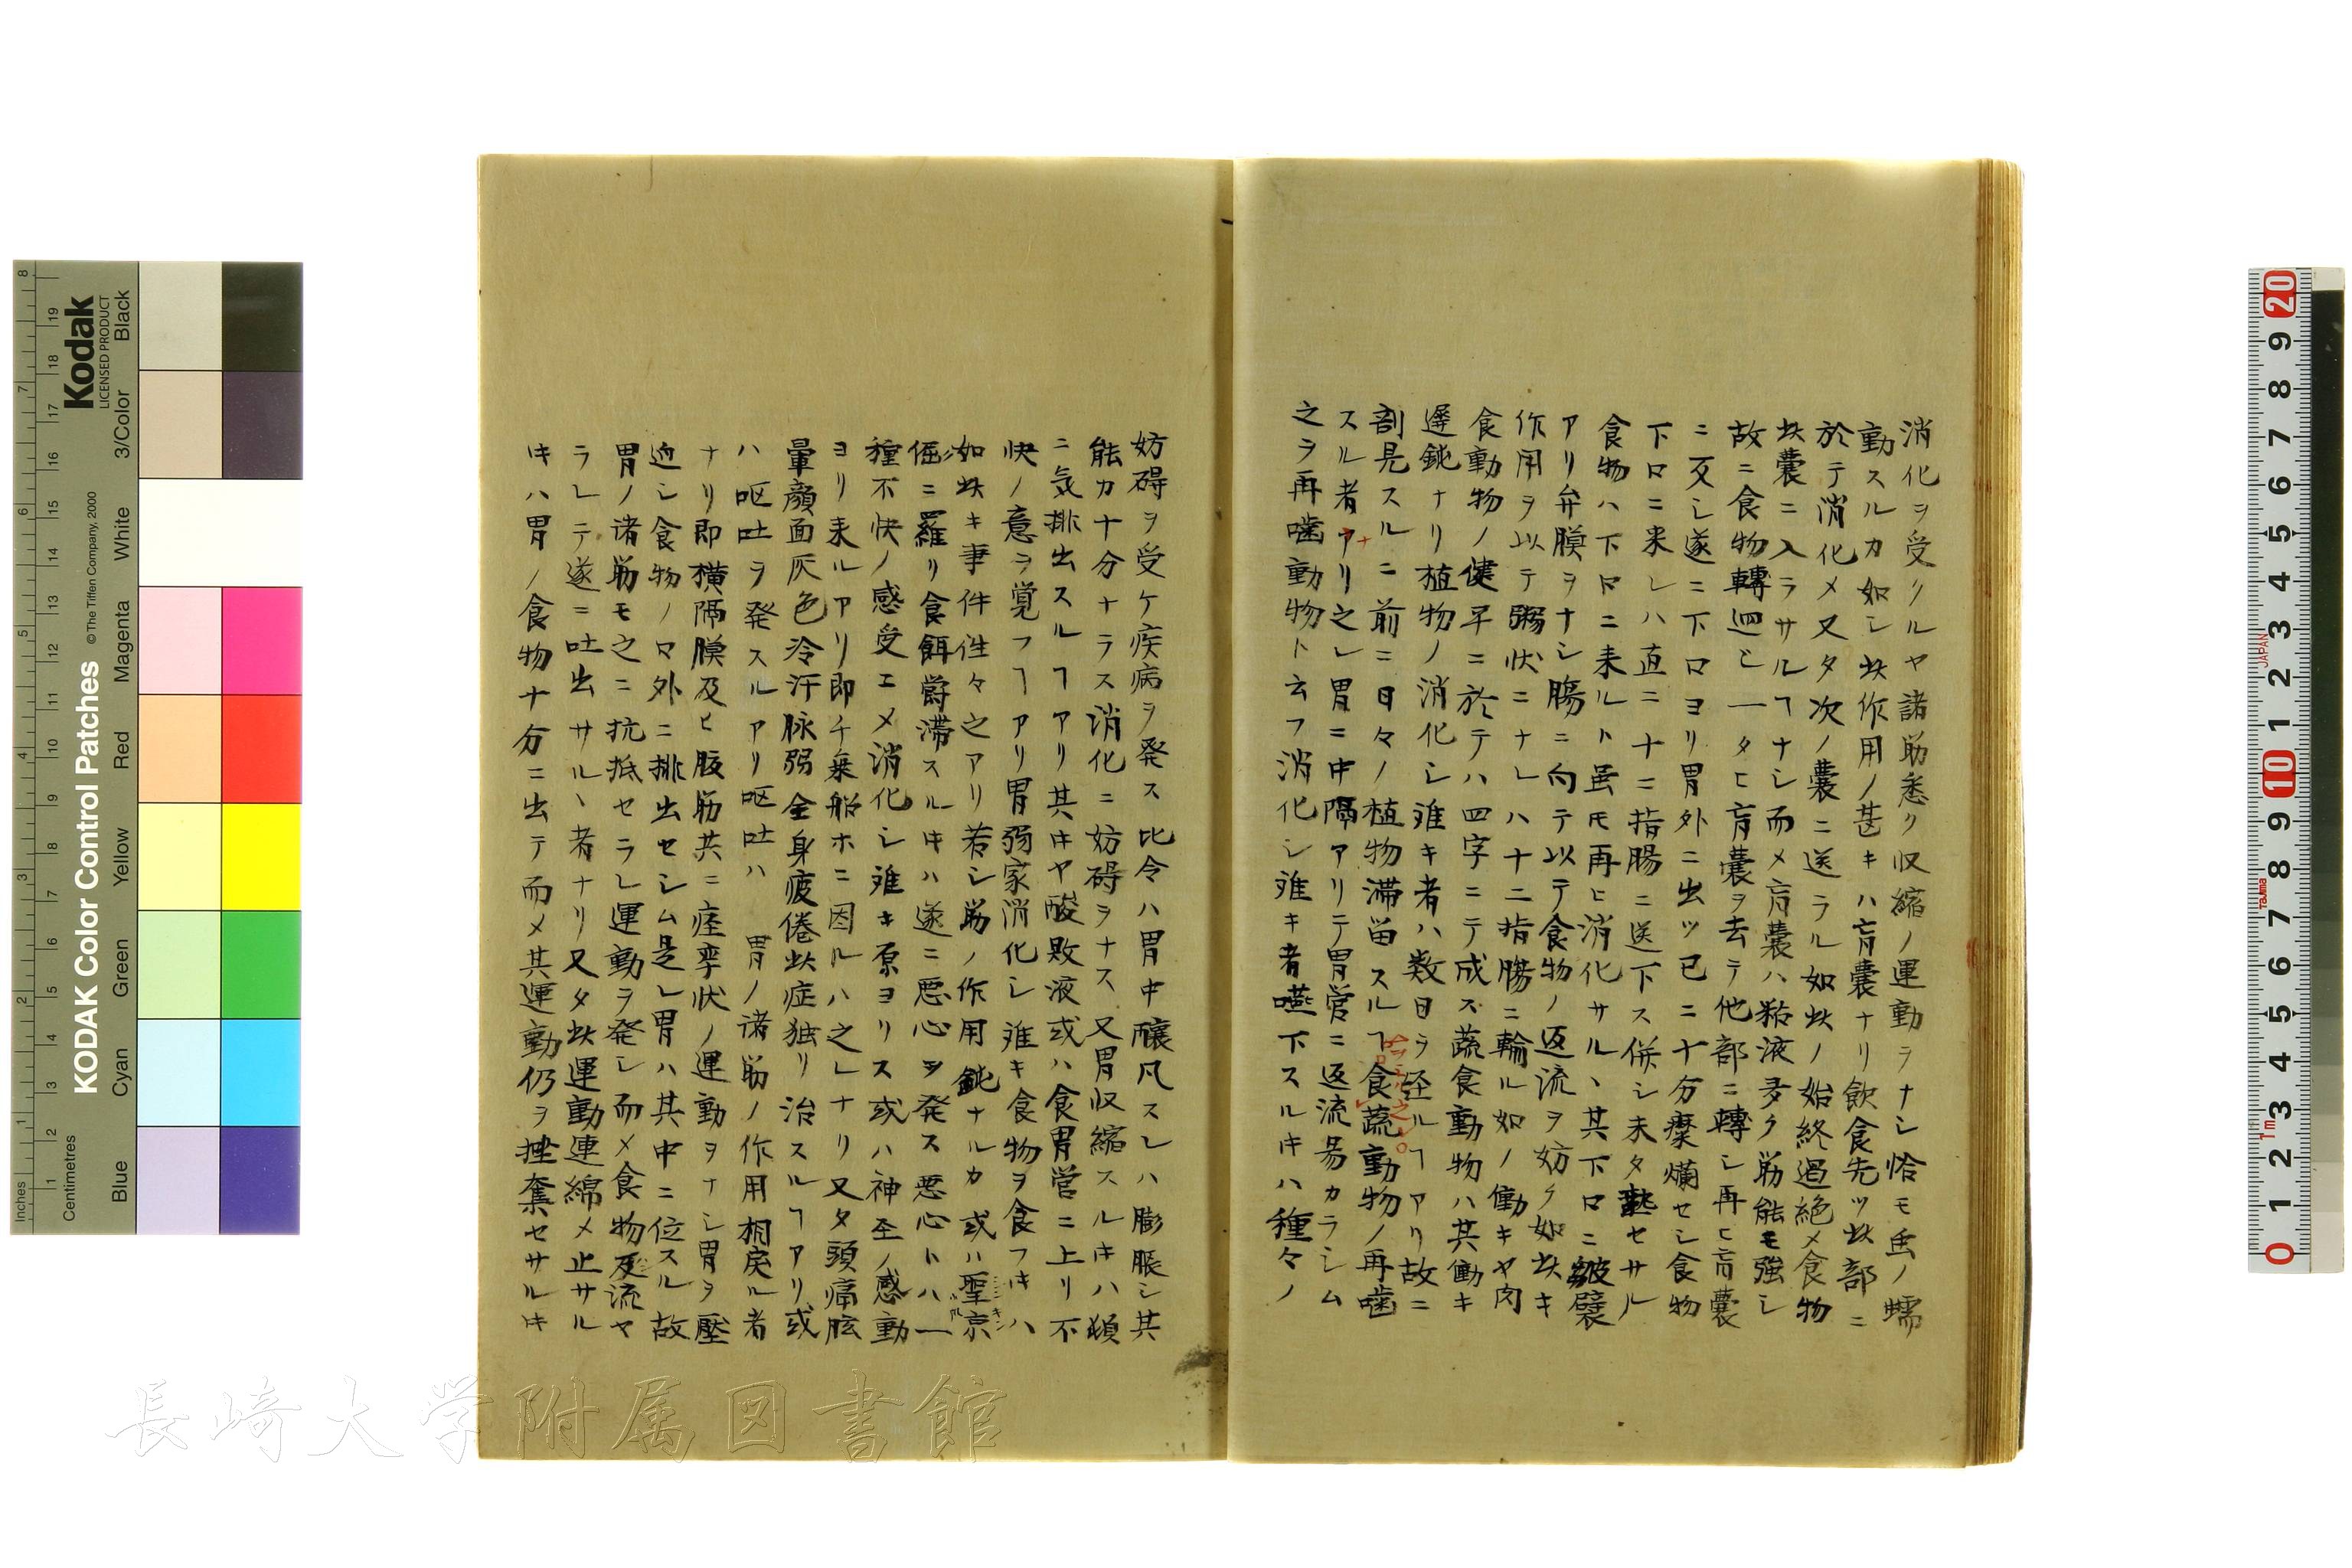 消化ヲ受クルヤ諸筋悉ク収縮ノ運動ヲナシ恰モ虫ノ蠕
動スルカ如シ此作用ノ甚キハ盲嚢ナリ飲食先ツ此部ニ
於テ消化メ又タ次ノ嚢ニ送ラル如此ノ始終過絶メ食物
此嚢ニ入ラサルヿナシ而メ盲嚢ハ粘液多ク筋能モ強シ
故ニ食物轉廻シ一タヒ盲嚢ヲ去テ他部ニ轉シ再ヒ盲嚢
ニ反シ遂ニ下口ヨリ胃外ニ出ツ已ニ十分糜爛セシ食物
下口ニ来レハ直ニ十二指腸ニ送下ス併シ未タ熟セサル
食物ハ下口ニ来ルト虽モ再ヒ消化サル丶其下口ニ皺襞
アリ弁膜ヲナシ腸ニ向テ以テ食物ノ返流ヲ妨ク如此キ
作用ヲ以テ粥状ニナレハ十二指腸ニ輸ル如ノ働キヤ肉
食動物ノ健早ニ於テハ四字ニテ成ス蔬食動物ハ其働キ
遲鈍ナリ植物ノ消化シ难キ者ハ数日ヲ経ルヿアリ故ニ
剖見スルニ前ニ日々ノ植物滞留スルヿ食蔬動物ノ再噛
スル者アリ之レ胃ニ中隔アリテ胃営ニ返流易カラシム
之ヲ再噛動物ト云フ消化シ难キ者嚥下スルキハ種々ノ
妨碍ヲ受ケ疾病ヲ発ス比令ハ胃中醸凡スレハ膨脹シ其
能カ十分ナラス消化ニ妨碍ヲナス又胃収縮スルキハ頻
ニ気排出スルヿアリ其キヤ酸敗液或ハ食胃営ニ上リ不
快ノ意ヲ覚フヿアリ胃弱家消化シ难キ食物ヲ食フキハ
如此キ事件徃々之アリ若シ筋ノ作用鈍ナルカ或ハ聖京
倔ニ羅リ食餌欝滞スルキハ遂ニ悪心ヲ発ス悪心トハ一
種不快ノ感受エメ消化シ难キ原ヨリス或ハ神圣ノ感動
ヨリ来ルアリ即チ乗船ホニ因ルハ之レナリ又タ頭痛眩
暈顔面灰色冷汗脉弱全身疲倦此症独リ治スルヿアリ或
ハ呕吐ヲ発スルアリ呕吐ハ 胃ノ诸筋ノ作用相戻ル者
ナリ即横隔膜及ヒ腹筋共ニ痙孪状ノ運動ヲナシ胃ヲ壓
迫シ食物ノ口外ニ排出セシム是レ胃ハ其中ニ位スル故
胃ノ诸筋モ之ニ抗抵セラレ運動ヲ発シ而メ食物反流ヤ
ラレテ遂ニ吐出サル丶者ナリ又タ此運動連綿メ止サル
キハ胃ノ食物十分ニ出テ而メ其運動仍ヲ挫奪セサルキ
長崎大学附属図書館
KODAK Color Control Patches
© The Tiffen Company, 2000
Kodak
LICENSED PRODUCT
Inches
Centimetres
Blue Cyan Green Yellow Red Magenta White 3/Color Black
JAPAN
Tajima